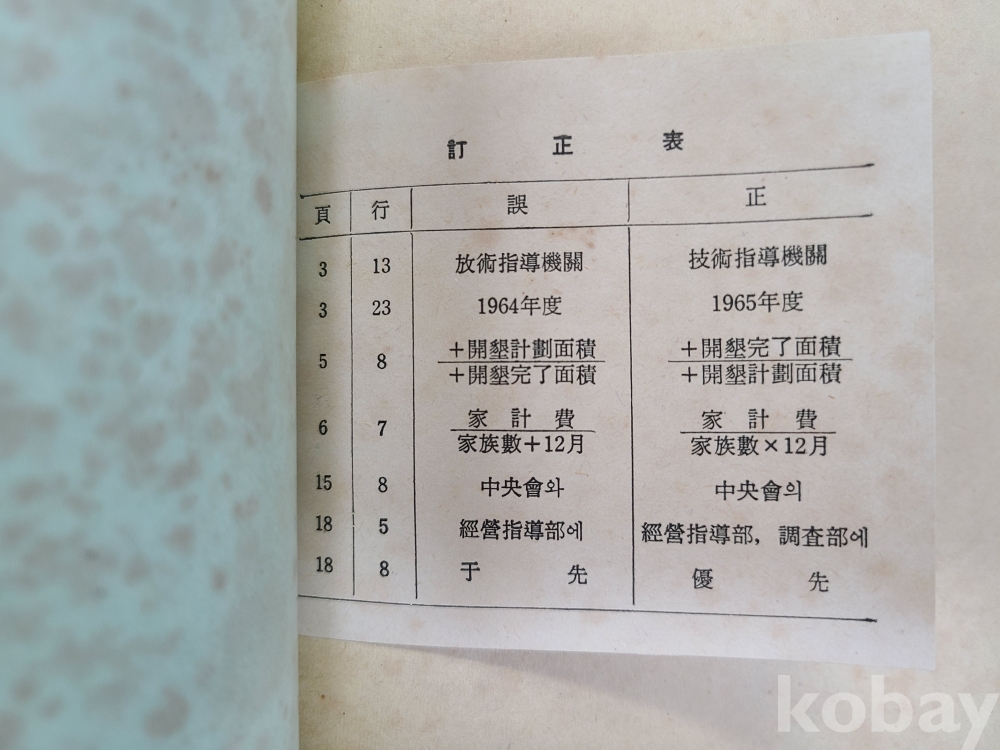 訂正表
頁 行 誤 正
3 13 放術指導機關 技術指導機關
3 23 1964年度 1965年度
5 8 +開墾計劃面積 +開墾完了面積
+開墾完了面積 +開墾計劃面積
6 7 家計費 家計費
家族數+12月 家族數×12月
15 8 中央會와 中央會의
18 5 經營指導部에 經營指導部, 調査部에
18 8 于先 優先
kobay